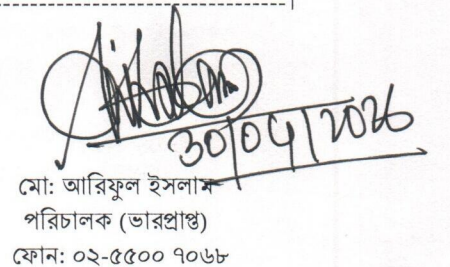 30/04/2026
মো: আরিফুল ইসলাম
পরিচালক (ভারপ্রাপ্ত)
ফোন: ০২-৫৫০০ ৭০৬৮